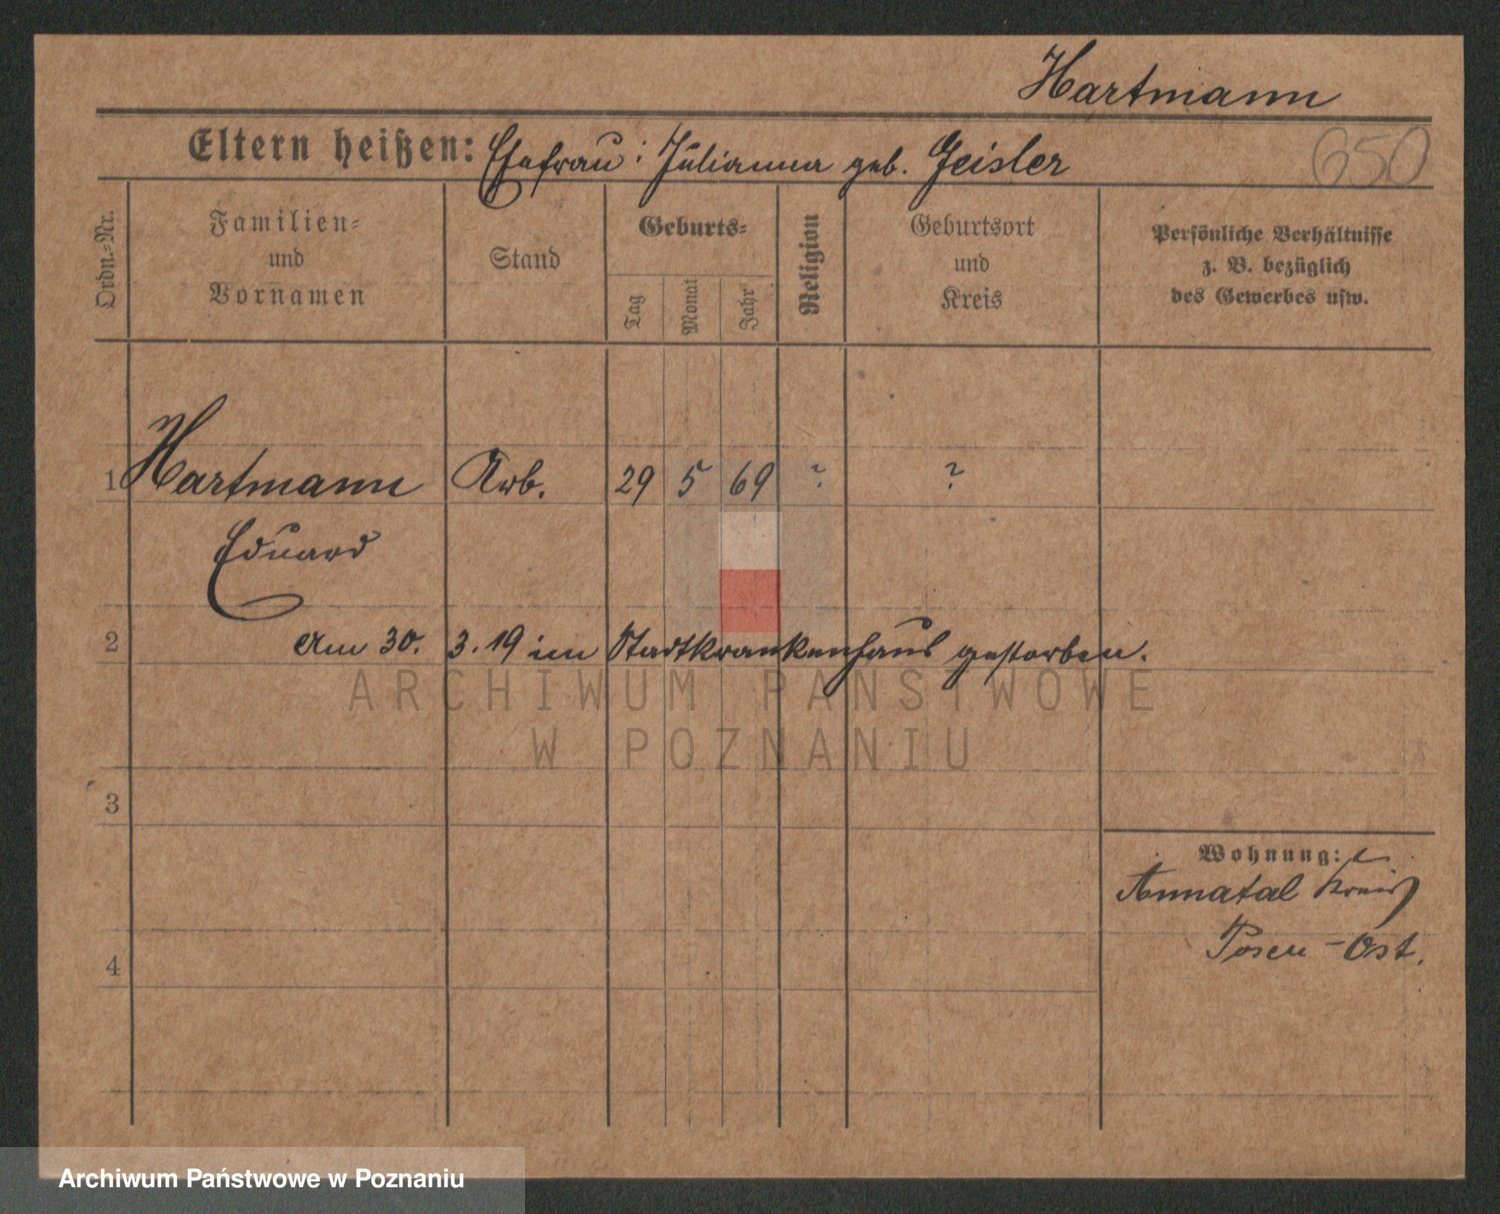 Hartmann
650
Eltern heißen: Ehefrau: Julianna geb. Geisler
Ordn.-Nr.
Familien-
und
Vornamen
Stand
Geburts-
Tag
Monat
Jahr
Religion
Geburtsort
und
Kreis
Persönliche Verhältnisse
z. B. bezüglich
des Gewerbes usw.
1 Hartmann Arb. 29 5 69 ? ?
Eduard
2 Am 30. 3. 19 im Stadtkrankenhaus gestorben.
ARCHIWUM PAŃSTWOWE
W POZNANIU
3
Wohnung:
Annatal Kreis
Posen-Ost.
4
Archiwum Państwowe w Poznaniu